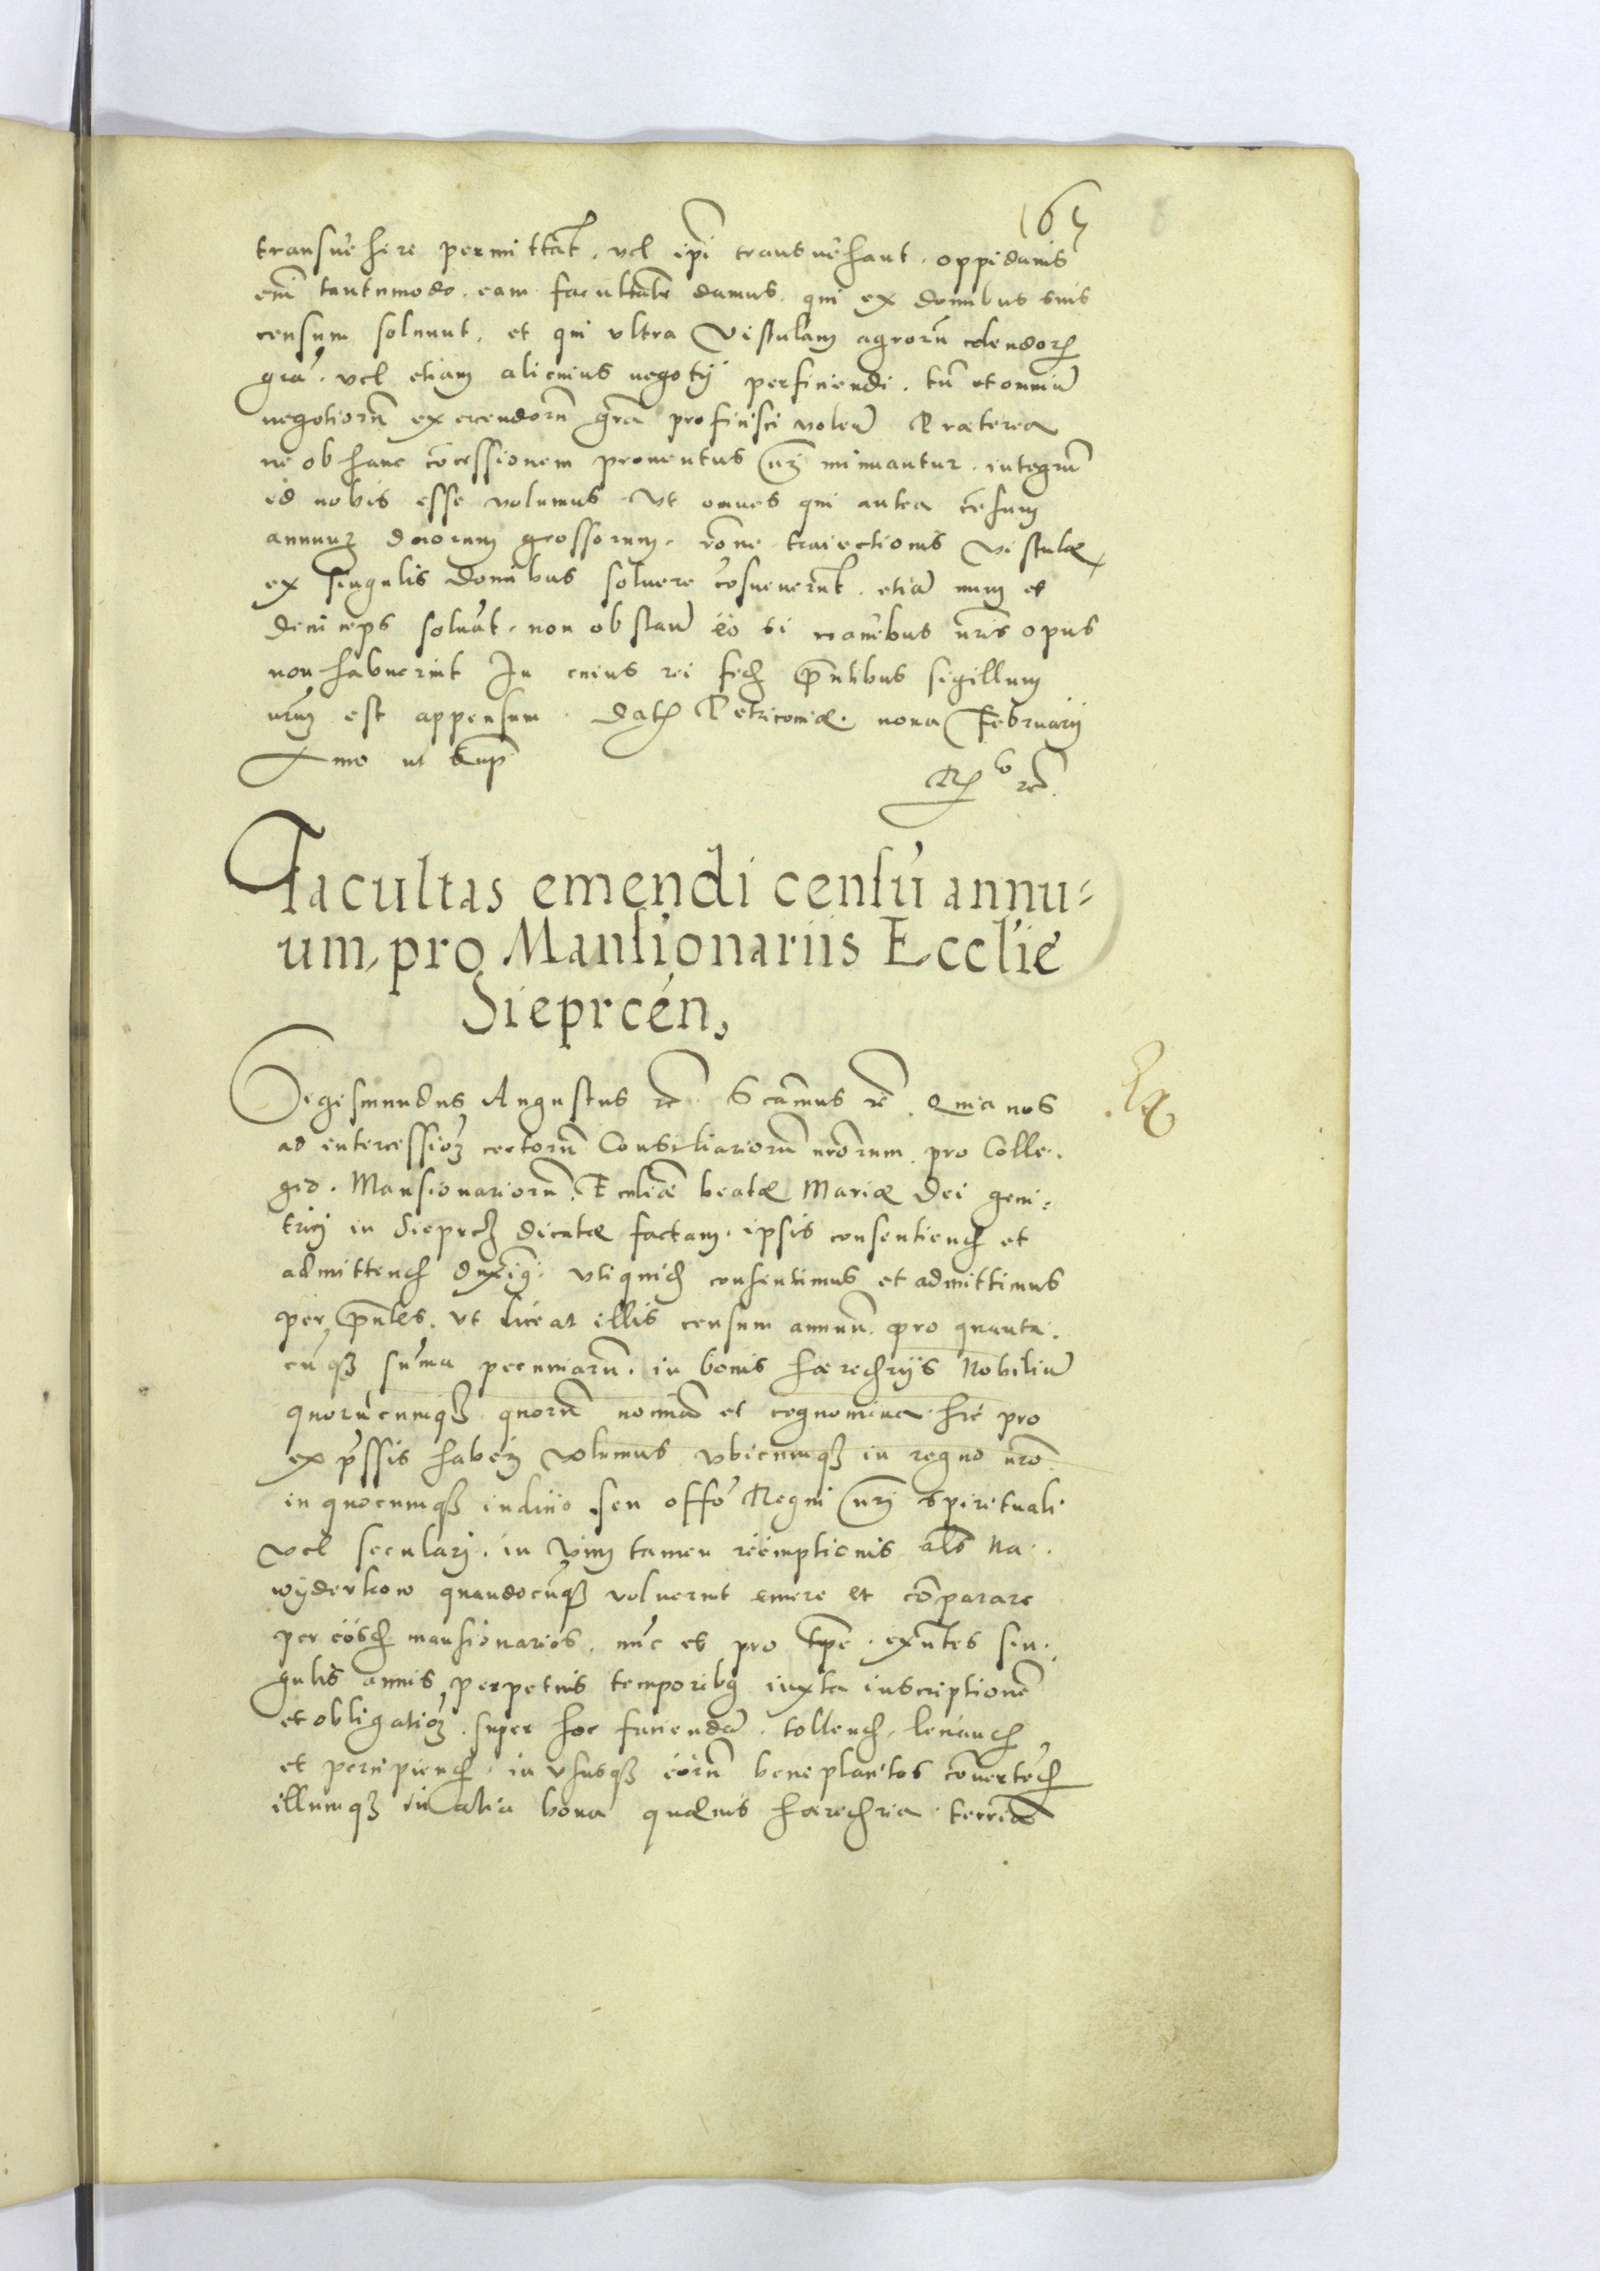 165
transuehere permittat, vel ipi transuehant. oppidanis
eni tantumodo eam facultate damus, qui ex domibus suis
censum soluunt, et qui vltra Vistulam agroru colendor
gra, vel etiam alicuius negotij perficiendi, tu et omniu
negotioru exercendoru gra proficisci volen Præterea
ne ob hanc cocessionem prouentus nri minuantur. integru
id nobis esse volumus Vt omnes qui antea cesum
annuu duorum grossorum, rone traiectionis Vistulæ
ex singulis domibus soluere cosueuerut, etia nunc et
deinceps soluat, non obstan eo si nauibus nris opus
non habuerint In cuius rei fid pntibus sigillum
nrum est appensum. Dat Petricouiæ. nona Februarij
Anno ut Sup
Facultas emendi censu annu=
um, pro Mansionariis Ecclie
Sieprcen,
Segismundus Augustus rc Scamus rc. Quia nos
Rx
ad intercession certoru Consiliarioru nrorum pro Colle.
gio. Mansionarioru. Eccliæ beatæ Mariæ Dei geni=
trici in Sieprcz dicatæ factam, ipsis consentiend et
admittend duxim. Vtiquid consentimus et admittimus
per pntes. Vt liceat illis censum annuu. pro quanta.
cuqz suma pecuniaru. in bonis hæreditarijs Nobiliu
quorucumqz quoru nomina et cognomina hic pro
expressis haberi volumus vbicumqz in regno nro
in quocumqz iuditio seu offo Regni nri spirituali
vel seculari. in vim tamen reemptionis als Na.
wyderkow quandocuqz voluerint emere et comparare
per eosd mansionarios. nuc et pro tpe. exntes sin.
gulis annis perpetuis temporibq iuxta inscriptione
et obligation super hoc facienda. tollend, leuand
et percipiend. in vsusqz eoru beneplacitos conuerted
illumqz in alia bona quæuis hæreditaria terrena